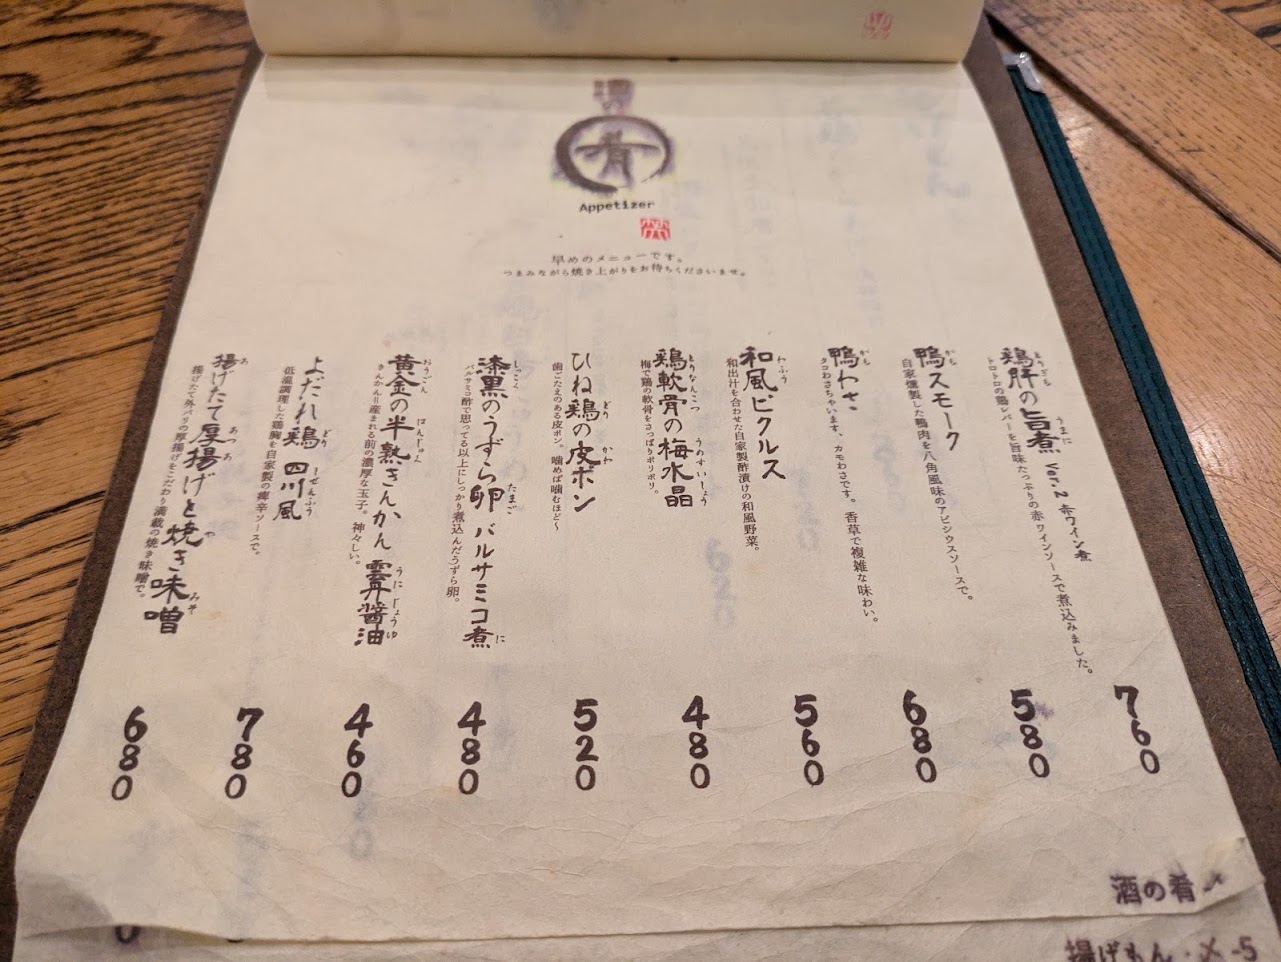 酒の
肴
Appetizer
早めのメニューです。
つまみながら焼き上がりをお待ちくださいませ。
とりぎも うまに
鶏肝の旨煮 Ver.2 赤ワイン煮
トロトロの鶏レバーを旨味たっぷりの赤ワインソースで煮込みました。
760
かも
鴨スモーク
自家燻製した鴨肉を八角風味のアピシウスソースで。
580
かも
鴨わさ
タコわさちゃいます、カモわさです。香草で複雑な味わい。
680
わふう
和風ピクルス
和出汁を合わせた自家製酢漬けの和風野菜。
560
とりなんこつ うめすいしょう
鶏軟骨の梅水晶
梅で鶏の軟骨をさっぱりポリポリ。
480
どり かわ
ひね鶏の皮ポン
歯ごたえのある皮ポン。噛めば噛むほど〜
520
しっこく たまご に
漆黒のうずら卵 バルサミコ煮
バルサミコ酢で思ってる以上にしっかり煮込んだうずら卵。
480
おうごん はんじゅく うにじょうゆ
黄金の半熟きんかん 雲丹醤油
きんかん=産まれる前の濃厚な玉子。神々しい。
460
どり しせんふう
よだれ鶏 四川風
低温調理した鶏胸を自家製の痺辛ソースで。
780
あ あつあ や みそ
揚げたて厚揚げと焼き味噌
揚げたて外パリの厚揚げをこだわり満載の焼き味噌で。
680
酒の肴
揚げもん・〆 -5